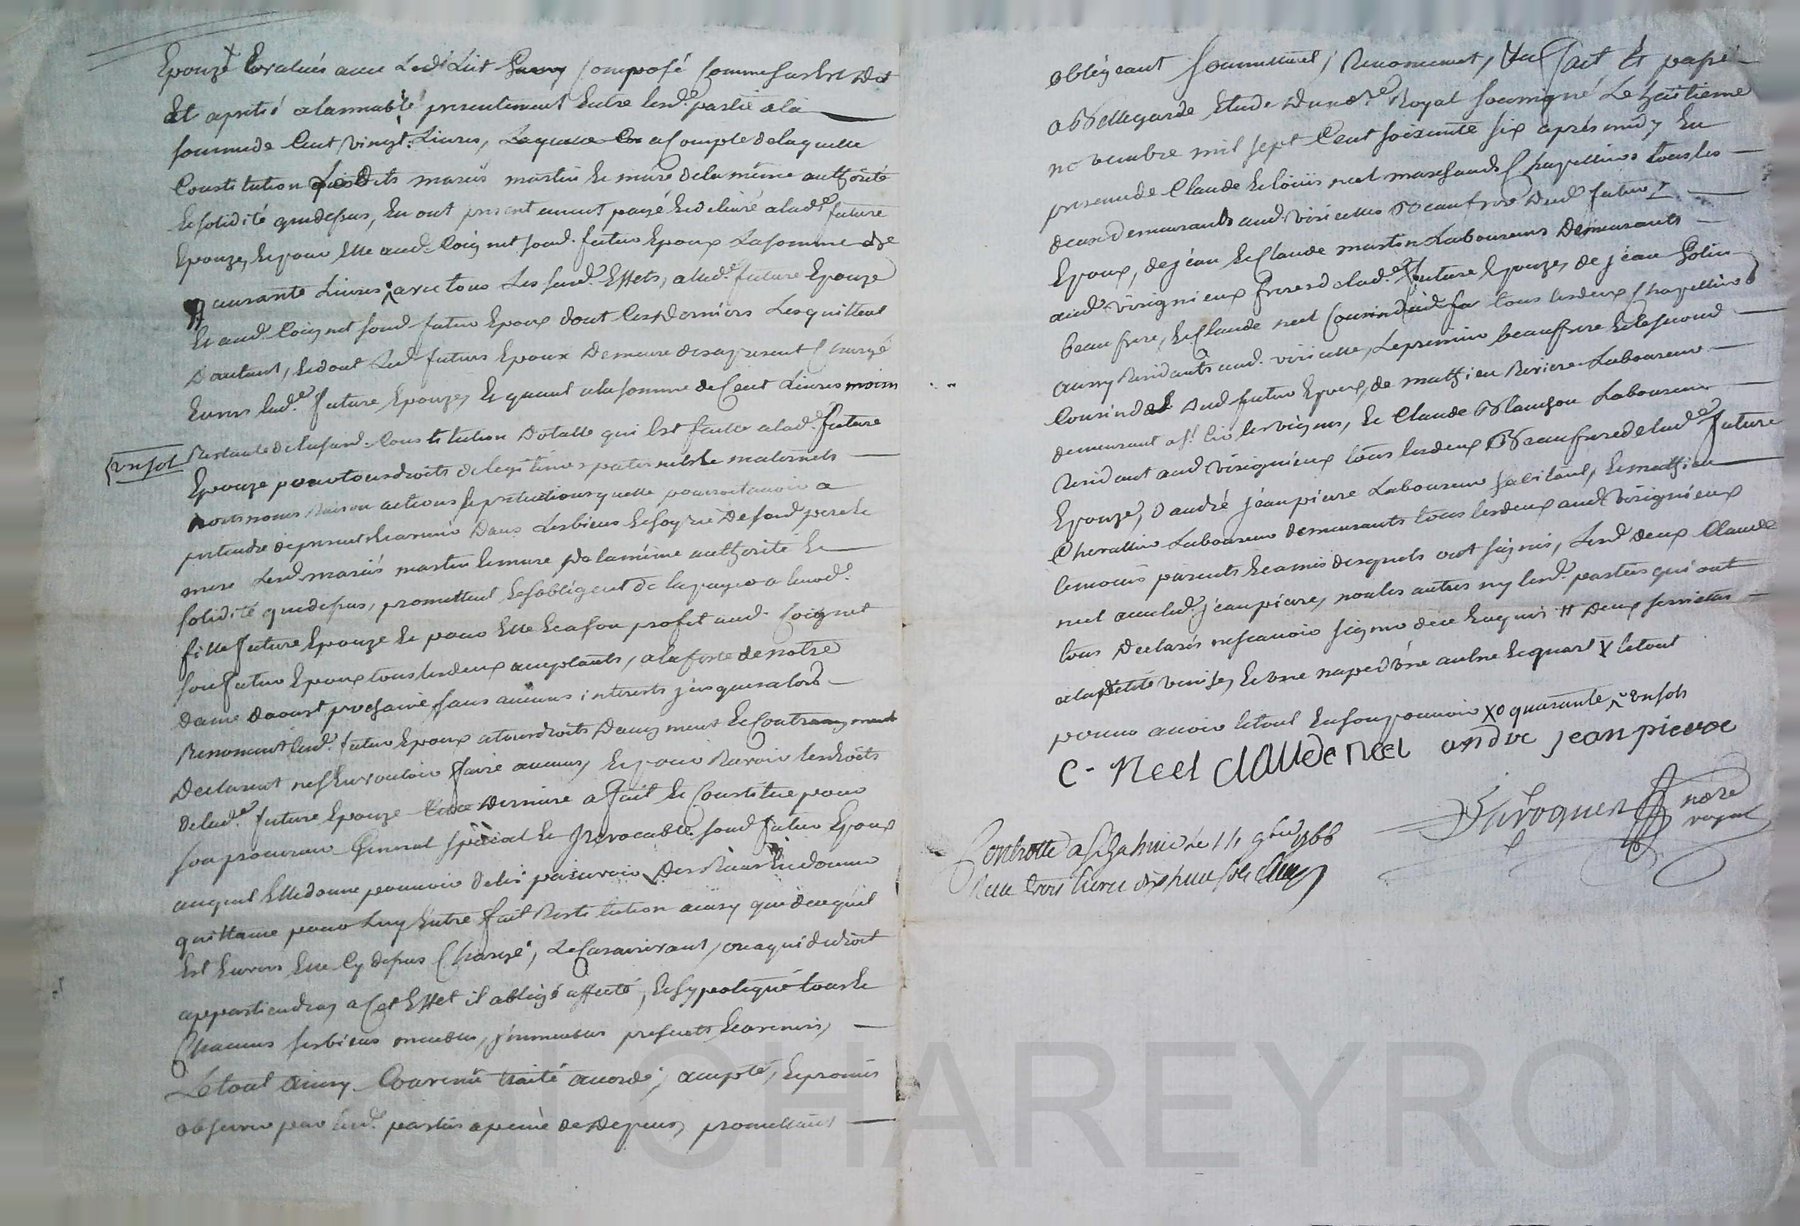 Epouze Evalués avec Ledt Lit Garny composé comme sus Est Dit
Et apretié alamiable presentement Entre lesd. partie ala
somme de Cent vingt Livres, acompte de laquelle
Constitution lesdits mariés martin de meme authorité
Et solidité que dessus, En ont presentement payé Et delivré a lad.e future
Epouze, Et pour Elle aud. Coignet son d. futur Epoux La somme de
quarante Livres, avec tous Les susd. Effets, a lad.e future Epouze
Et aud. Coignet son d. futur Epoux dont Ces derniers Les quittent
D'autant, Et dont Led. futur Epoux Demeure des apresent Chargé
Envers lad.e future Epouze, Et quant a la somme de Cent Livres moins
un sol
Restante de la susd. Constitution Dotalle qui Est faitte a lad.e future
Epouze pour tous droits de legitimes paternels Et maternels
noms raison actions Et pretentions quelle pourroit avoir a
pretendre de present Et avenir Dans Les biens Et hoyrie De sesd. pere Et
mere Lesd. mariés martin Et mure de la même authorité Et
solidité que dessus, promettent Et sobligent de la payer a leurd.
fille future Epouze Et pour Elle Et a son profit aud. Coignet
son futur Epoux tous les deux acceptants, a la feste de notre
dame Daoust prochaine, sans aucuns interests jusques alors
Renoncent lesd. futur Epoux a tous droits Daugment Et Contreaugment
Declarant nEn vouloir faire aucuns, Et pour Ravoir les droits
de lad.e future Epouze Cette Derniere a fait Et Constitué pour
son procureur General spécial Et Irrevocable sond. futur Epoux
auquel Elle donne pouvoir de les poursuivre Des Recus En donner
quittance pour Luy Entre fait Restitution ainsy que de ce quil
Est Envers Elle Cy dessus Chargé, Le Cas arrivant, ou a qui de droit
appartiendra, a Cet Effet il obligé affecté, Et hypotequé tous Et
Chacuns ses biens meubles, jmmeubles presents Et avenir,
Le tout Ainsy Convenu traité accordé, accepté, Et promis
observer par lesd. parties a peine de Depens, promettant
obligeant soumettant, Renoncant, &a fait Et passé
a Bellegarde Etude Du no.re Royal soussigné Le huitieme
novembre mil sept Cent soixante six aprés midy En
presence de Claude Et loüis neel marchands Chapelliers tous les
deux demeurants aud. viricelles Beaufrere Dud. futur
Epoux, de jéan Et Claude martin Laboureurs Demeurants
aud. virignieux freres de lad.e future Epouze, de jéan
beaufrere, Et Claude neel tous les deux Chapelliers
aussy Residants aud. viricelle, Le premier beaufrere Et le second
Cousin Dud. futur Epoux, de mathieu Riviere Laboureur
demeurant a Et Claude Blanchon Laboureur
Residant aud. virignieux tous les deux Beaufrere de lad.e future
Epouze, D'andré jéan pierre Laboureur habitant, Et mathieu
Chevallier Laboureur demeurants tous les deux aud. virignieux
temoins parents Et amis desquels ont signés, Lesd. deux Claude
neel avec led. jéan pierre, non les autres ny lesd. parties qui ont
tous Declarés ne scavoir signer de ce Enquis # Deux serviettes
a la petite venise, Et une nape d'une aulne Et quart X Le tout
pour avoir Le tout En son pouvoir Xo quarante, un sols
C - Neel CLAUDE NEEL andré jean pierre
Duroquin nore
royal
Controllé a Chazelles Le 14 9bre 1766
Recu trois livres dix huit sols
Pascal CHAREYRON